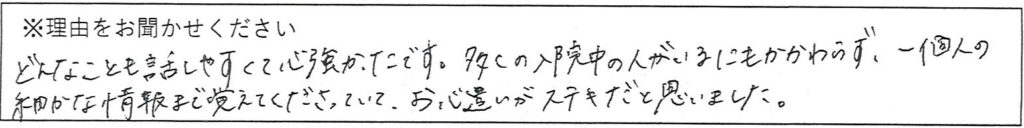 ※理由をお聞かせください
どんなことも話しやすくて心強かったです。多くの入院中の人がいるにもかかわらず、一個人の
細かな情報まで覚えてくださっていて、お心遣いがステキだと思いました。